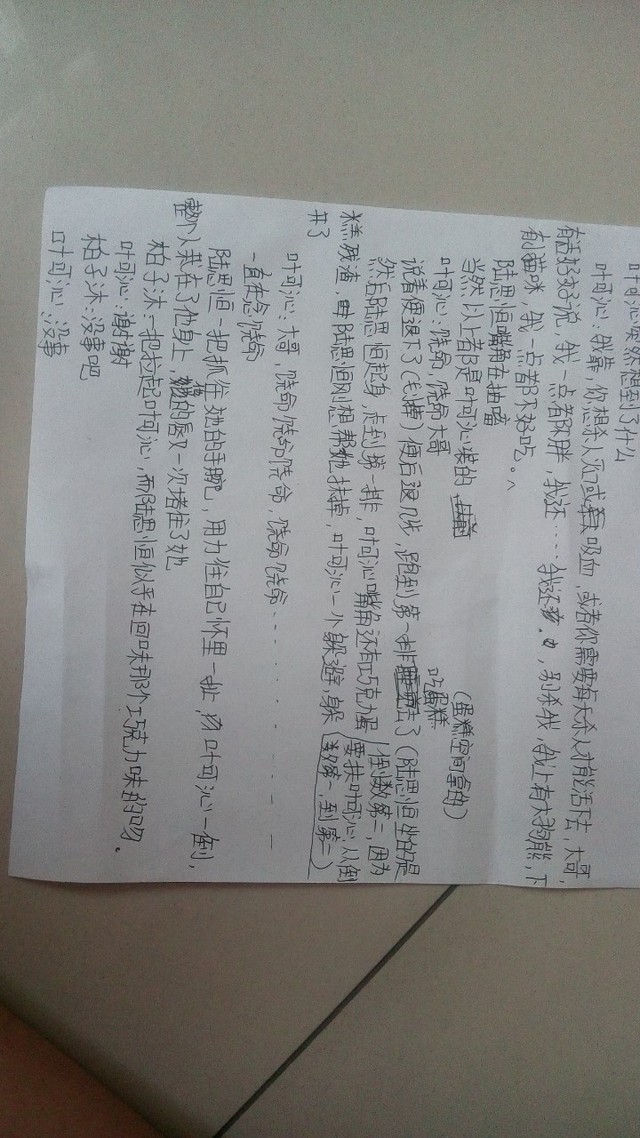 叶可沁突然想到了什么
叶可沁：我靠，你想杀人灭口或吸血，或者你需要每天杀人才能活下去，大哥，
有话好好说，我一点都不胖，我还……我还要.，别杀我，我上有大狗熊，下
有小猫咪，我一点都不好吃。
陆思恒嘴角在抽噎
当然以上都是叶可沁装的
叶可沁：饶命，饶命大哥
(蛋糕空间拿的)
吃蛋糕
说着便退下了(划掉)便后退几步，跑到第一排去了(陆思恒坐的是
倒数第二，因为
然后陆思恒起身，走到第一排，叶可沁嘴角还有巧克力蛋
要扶叶可沁，从倒
糕残渣，陆思恒刚想帮她抹掉，叶可沁一小躲避，躲
数第一，到第二)
开了
叶可沁：大哥，饶命饶命饶命，饶命饶命……
一直在念饶命
陆思恒一把抓住她的手腕，用力往自己怀里一扯，叶可沁一倒，
整个人栽在了他身上，他的唇又一次堵住了她
柏子沐一把拉起叶可沁，而陆思恒似乎在回味那个巧克力味的吻。
叶可沁：谢谢
柏子沐：没事吧
叶可沁：没事